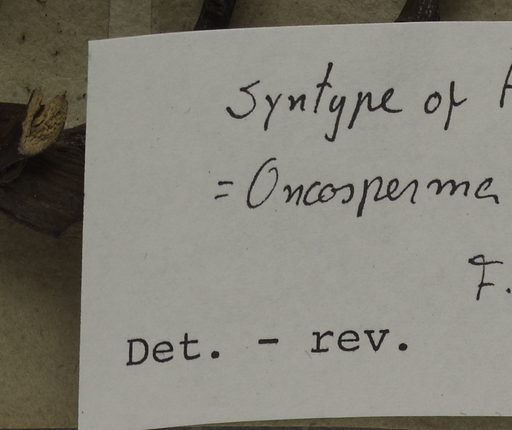 Syntype of
= Oncosperma
F.
Det. - rev.